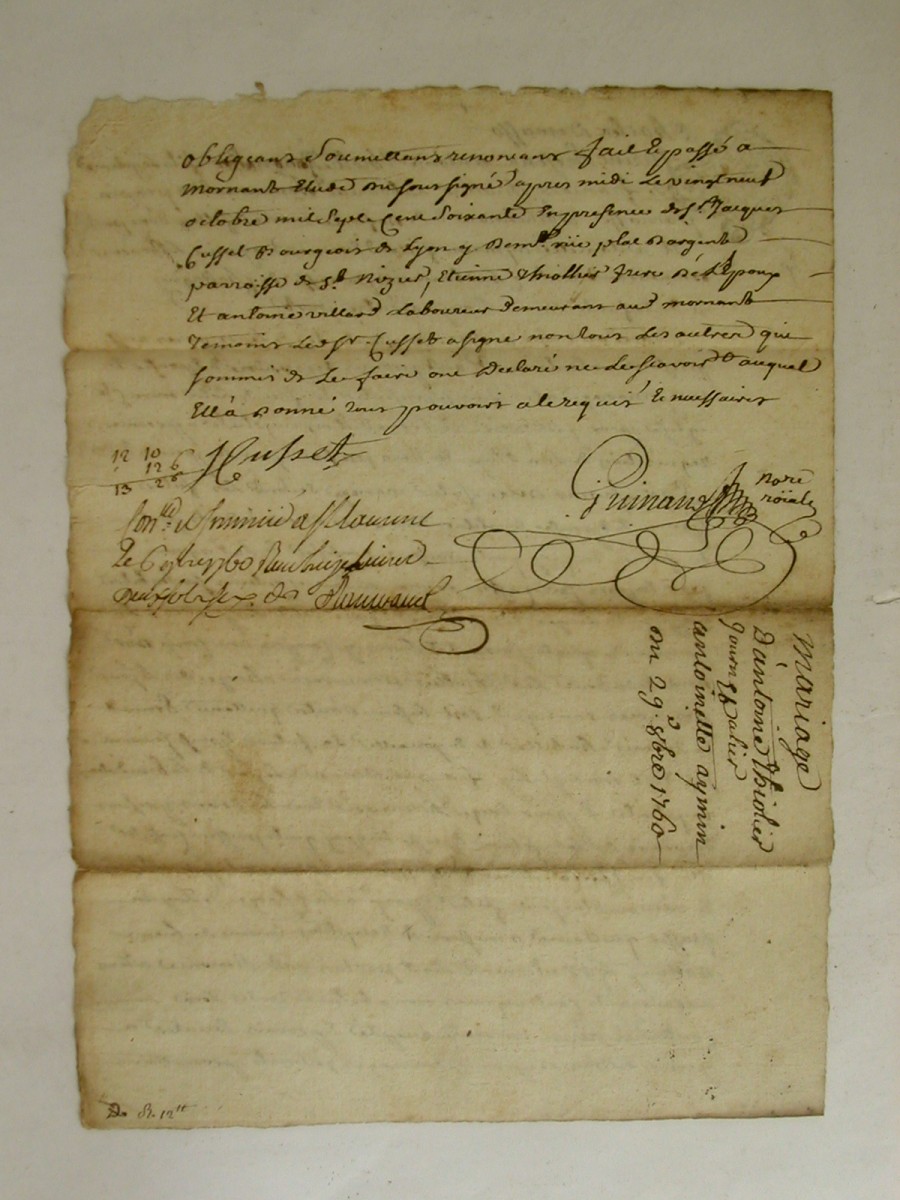 obligeans Soumettans renonceans fait & passé a
mornant Etude du soussigné apres midi le vingt neuf
octobre mil Sept Cent Soixante En presence de Sr. Jacques
Cusset Bourgeois de Lyon y demt. rüe plat d'argent
parroisse de St. Nizier, Etienne thiollier frere de l'Epoux
Et antoine villard Laboureur Demeurant aud mornant
Temoins Led Sr. Cusset a signé non tous les autres qui
sommés de Le faire ont Declaré ne le scavoir auquel
Ella donné tous pouvoirs a le requis & necessaires
12 10
12 6
13 2 6
JCusset
Guinand nore
röiale
a St Laurent
Le
mariage
D'antoine thiolier
journalier
&
antoinette aymin
du 29.e 8bre 1760